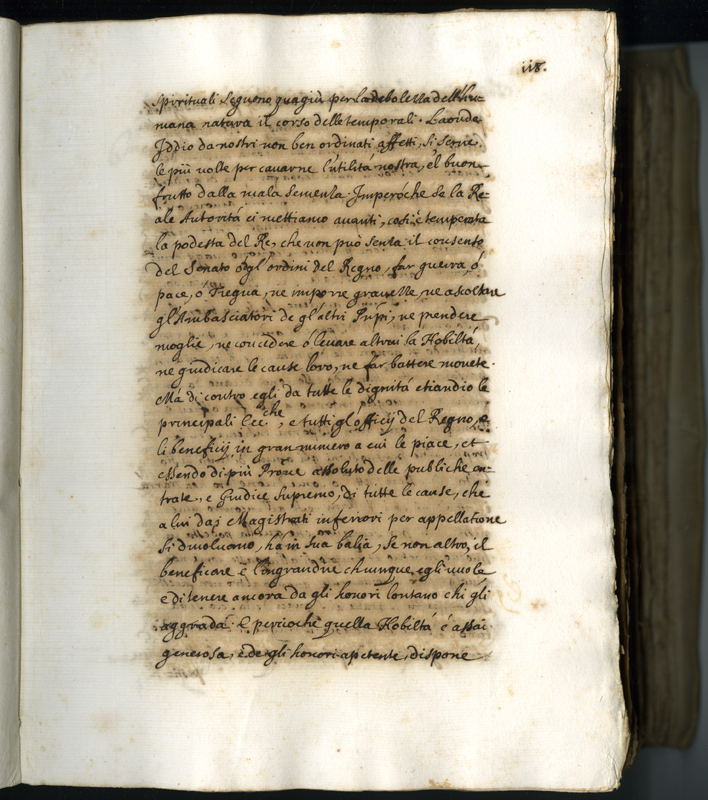 118.
spirituali seguono quagiù per la debolezza dell'hu-
mana natura il corso delle temporali. Laonde
Iddio da nostri non ben ordinati affetti, si serve,
le più volte per cavarne l'utilità nostra, el buon
frutto dalla mala semenza. Imperóche se la Re-
ale Autorità ci mettiamo avanti, così è temperata
la podesta del Re, che non può senza il consenso
del Senato ò gl'ordini del Regno, far guerra ó
pace, ó Tregua, ne imporre gravezze, ne ascoltare
gl'Ambasciatori de gl'altri Prnpi, ne prendere
moglie, ne concedere ó levare altrui la Nobiltá,
ne giudicare le cause loro, ne far battere monete.
Má di contro egli dá tutte le dignitá etiandio le
principali Ecc.che, e tutti gl'officij del Regno, e
li beneficij in gran numero a cui le piace, et
essendo di più Prnve assoluto delle publiche en-
trate, e Giudice supremo, di tutte le cause, che
a lui daj Magistrati inferiori per appellatione
si divolvono, há in sua balia, se non altro, il
beneficare e l'ingrandire chiunque egli vuole
e di tenere ancora da gli honori lontano chi gli
aggradá. E perioche quella Nobiltá é assai
generosa, e de gli honori apetente, dispone